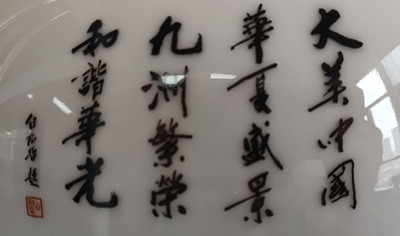 大美中國
華夏盛景
九洲繁榮
和諧華光